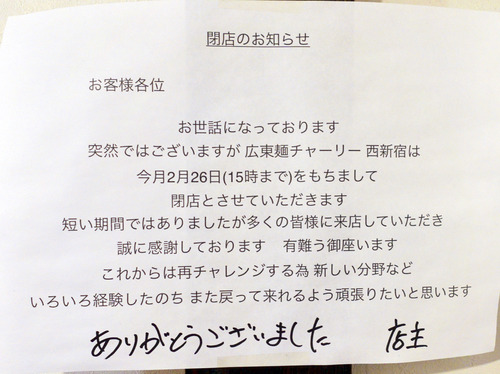 閉店のお知らせ
お客様各位
お世話になっております
突然ではございますが 広東麺チャーリー 西新宿は
今月2月26日(15時まで)をもちまして
閉店とさせていただきます
短い期間ではありましたが多くの皆様に来店していただき
誠に感謝しております　有難う御座います
これからは再チャレンジする為 新しい分野など
いろいろ経験したのち また戻って来れるよう頑張りたいと思います
ありがとうございました　店主